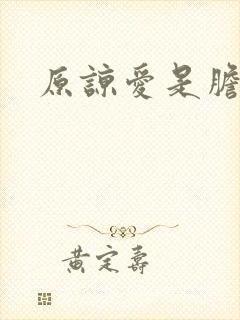 原諒愛是膽
黃定壽